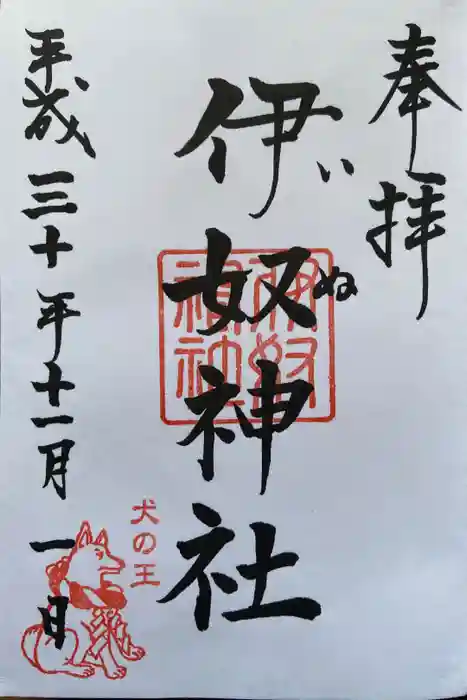 奉拝
伊奴神社
いぬ
伊奴神社
平成三十年十一月一日
犬の王